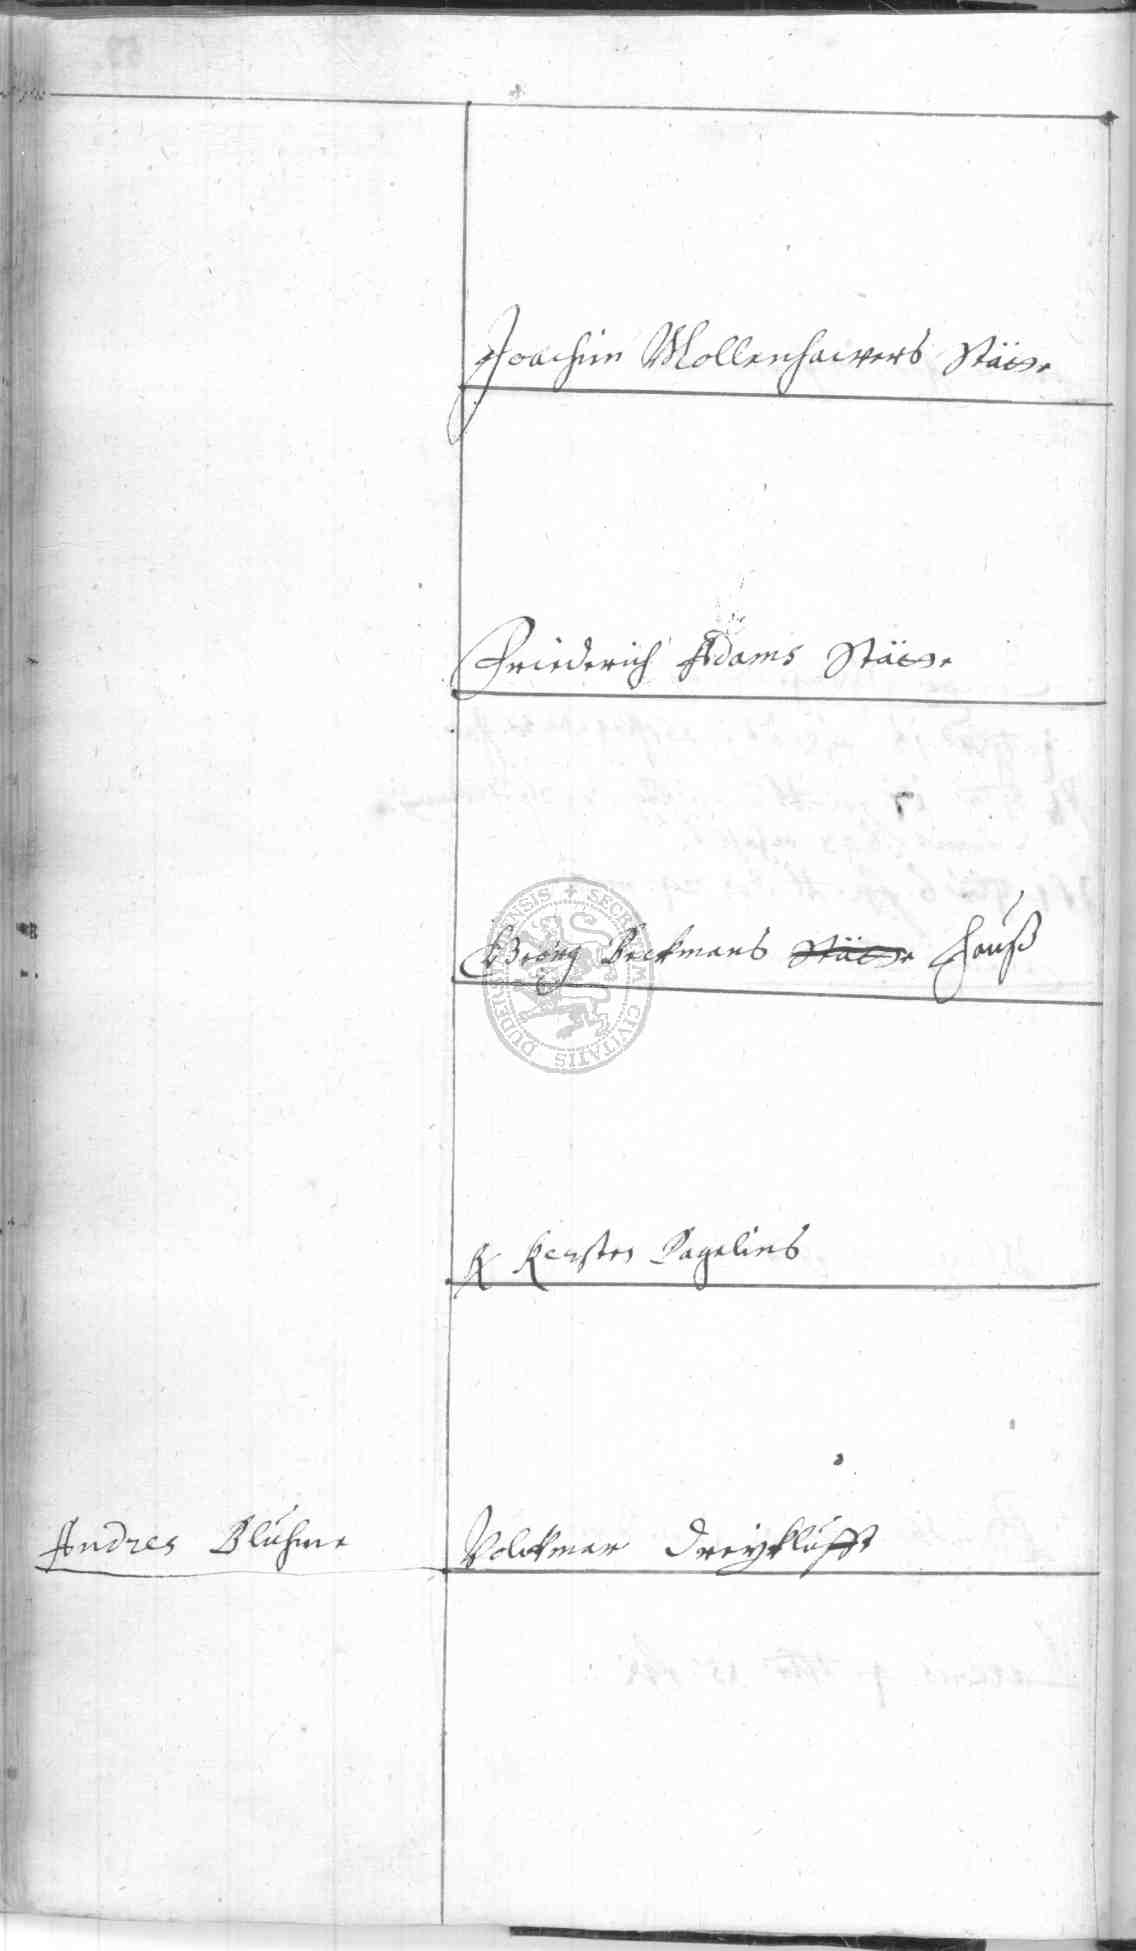 Joachim Mollenhawers Stätte
Friederich Adams Stätte
Georg Beckmans Stätte Hauß
K Kersten Pagelins
Andres Blühme Volckmar Dreyklufft
SECRETUM CIVITATIS DUDERS ENSIS